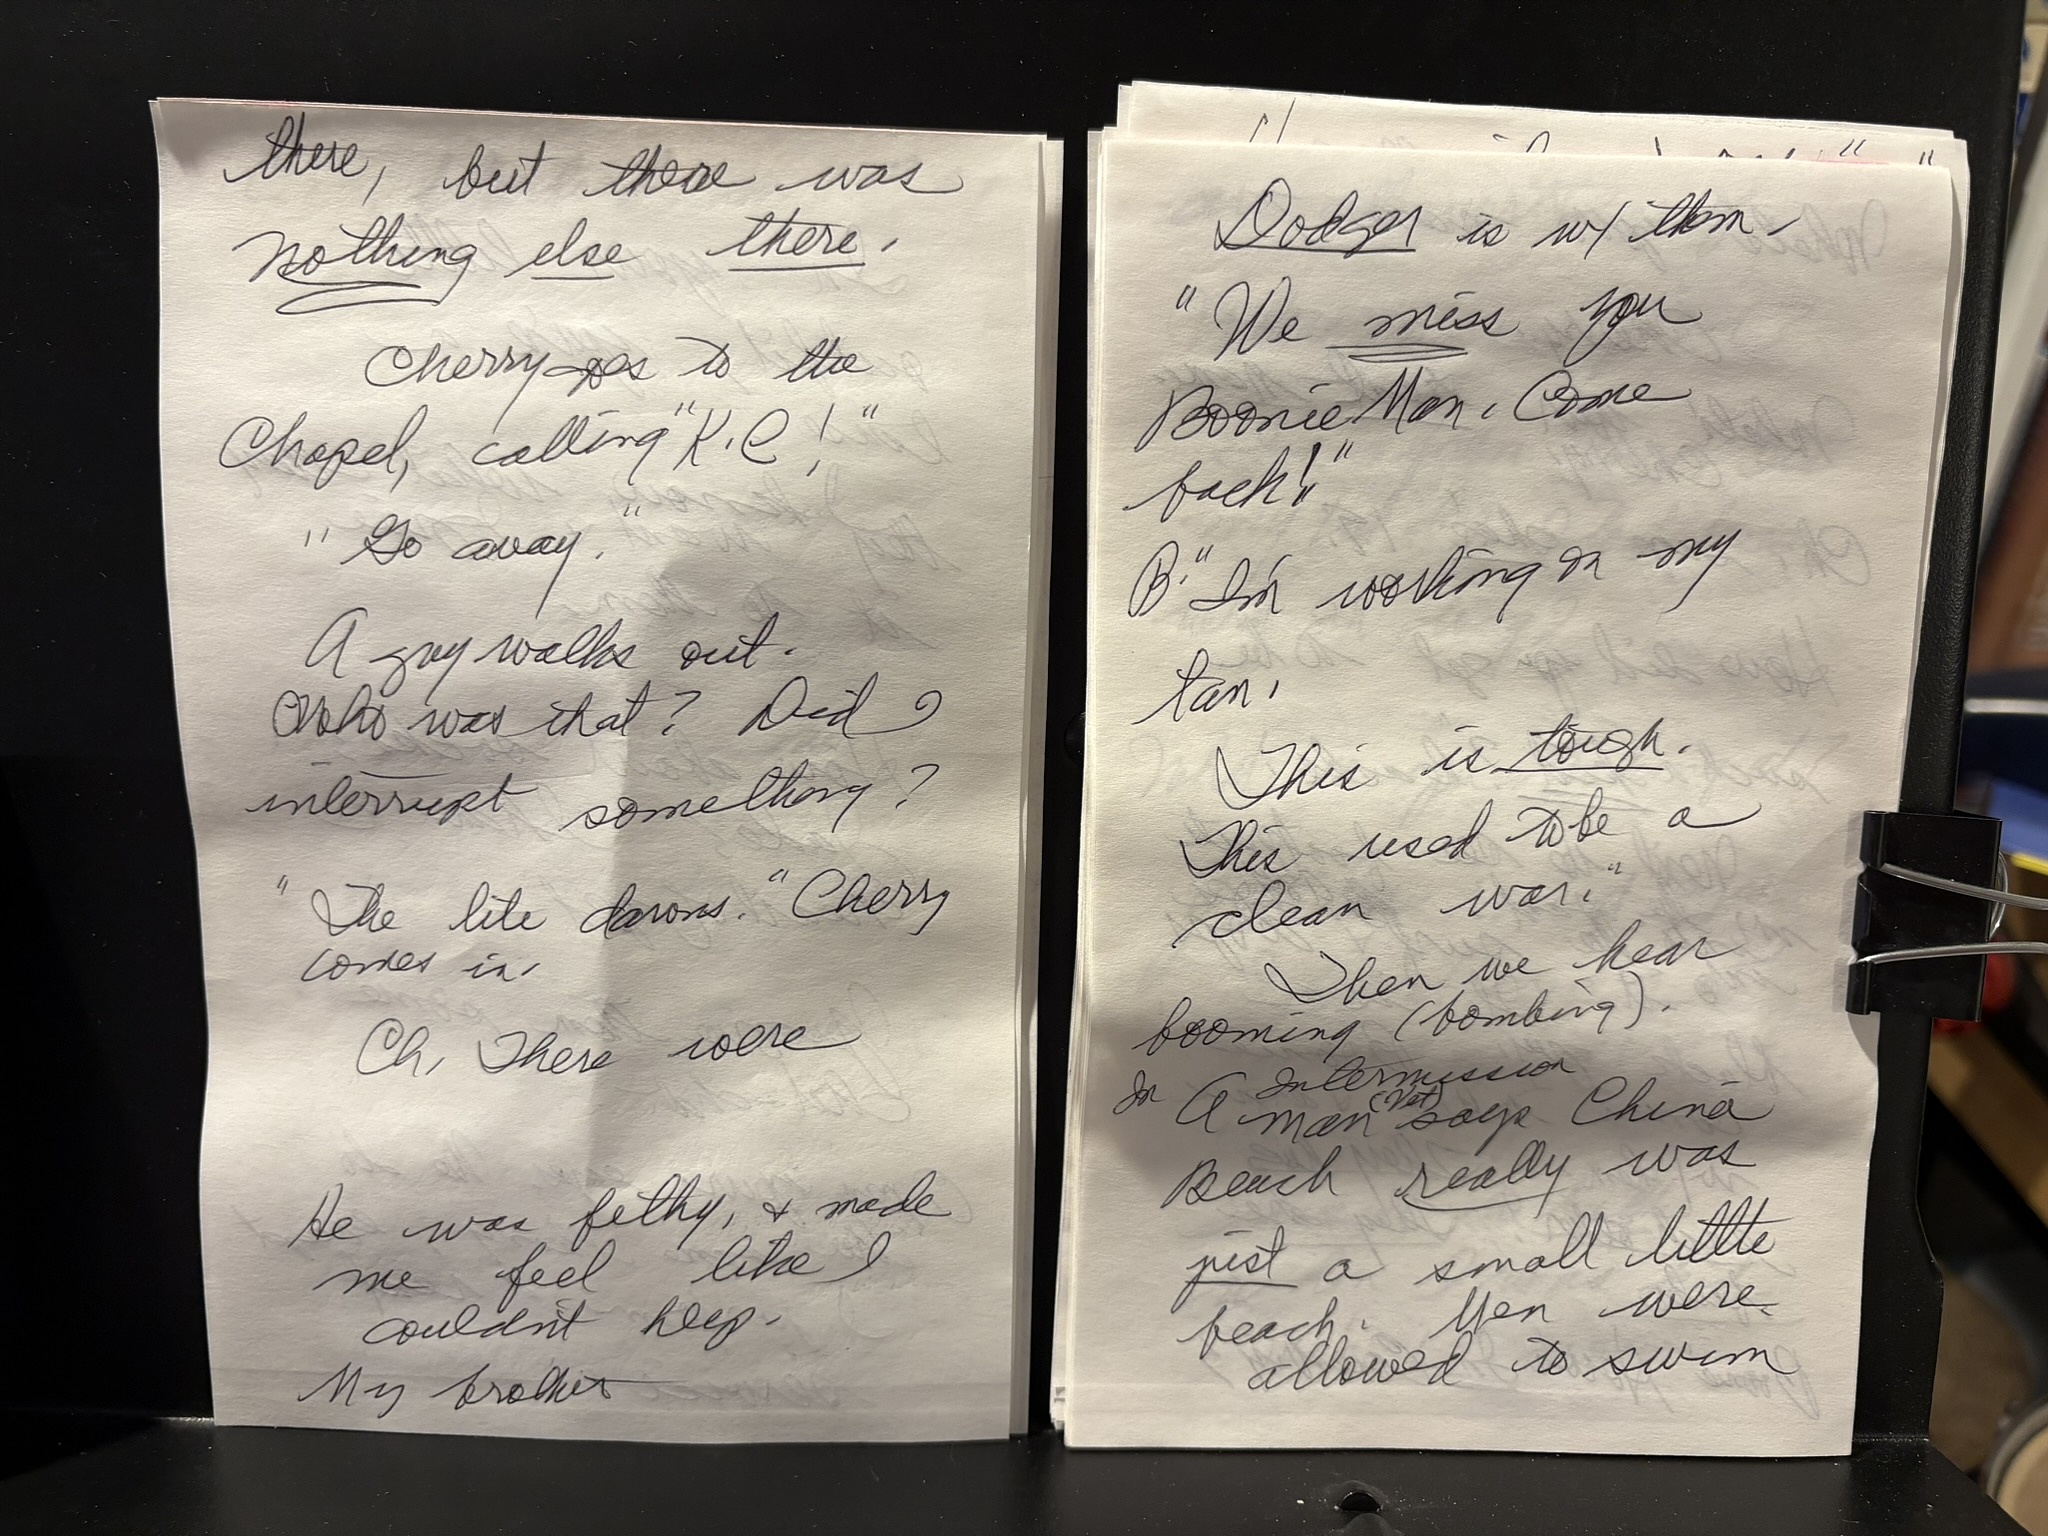 there, but there was
nothing else there.
Cherry goes to the
Chapel, calling "K.C!"
"Go away."
A guy walks out.
Who was that? Did I
interrupt something?
"The lite dawns." Cherry
comes in.
Ch. There were
He was filthy, & made
me feel like I
couldn't help.
My brother
Dodger is w/ them.
"We miss you
Boonie Man. Come
back!"
B. "I'm working on my
tan.
This is tough.
This used to be a
clean war."
Then we hear
booming (bombing).
In Intermission
A man (Vet) says China
Beach really was
just a small little
beach. Men were
allowed to swim